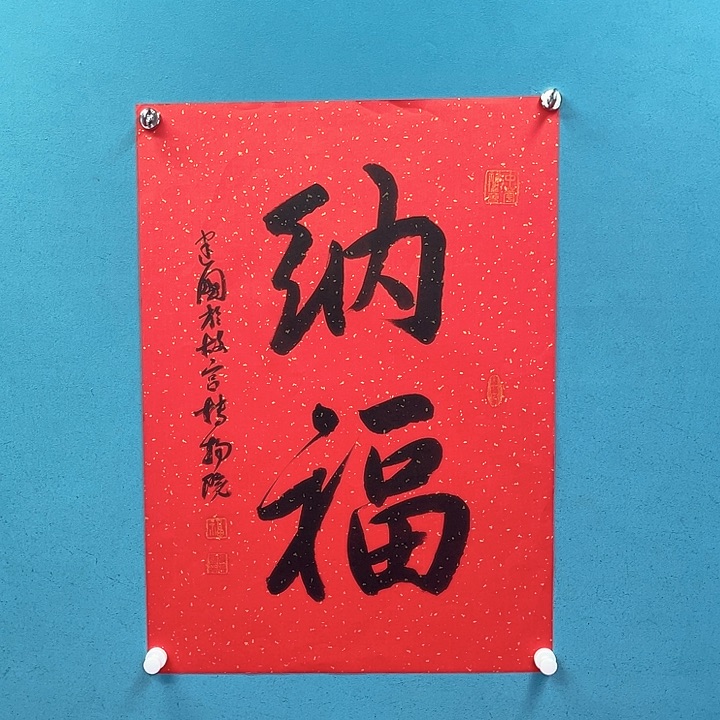 纳福
建国於故宫博物院